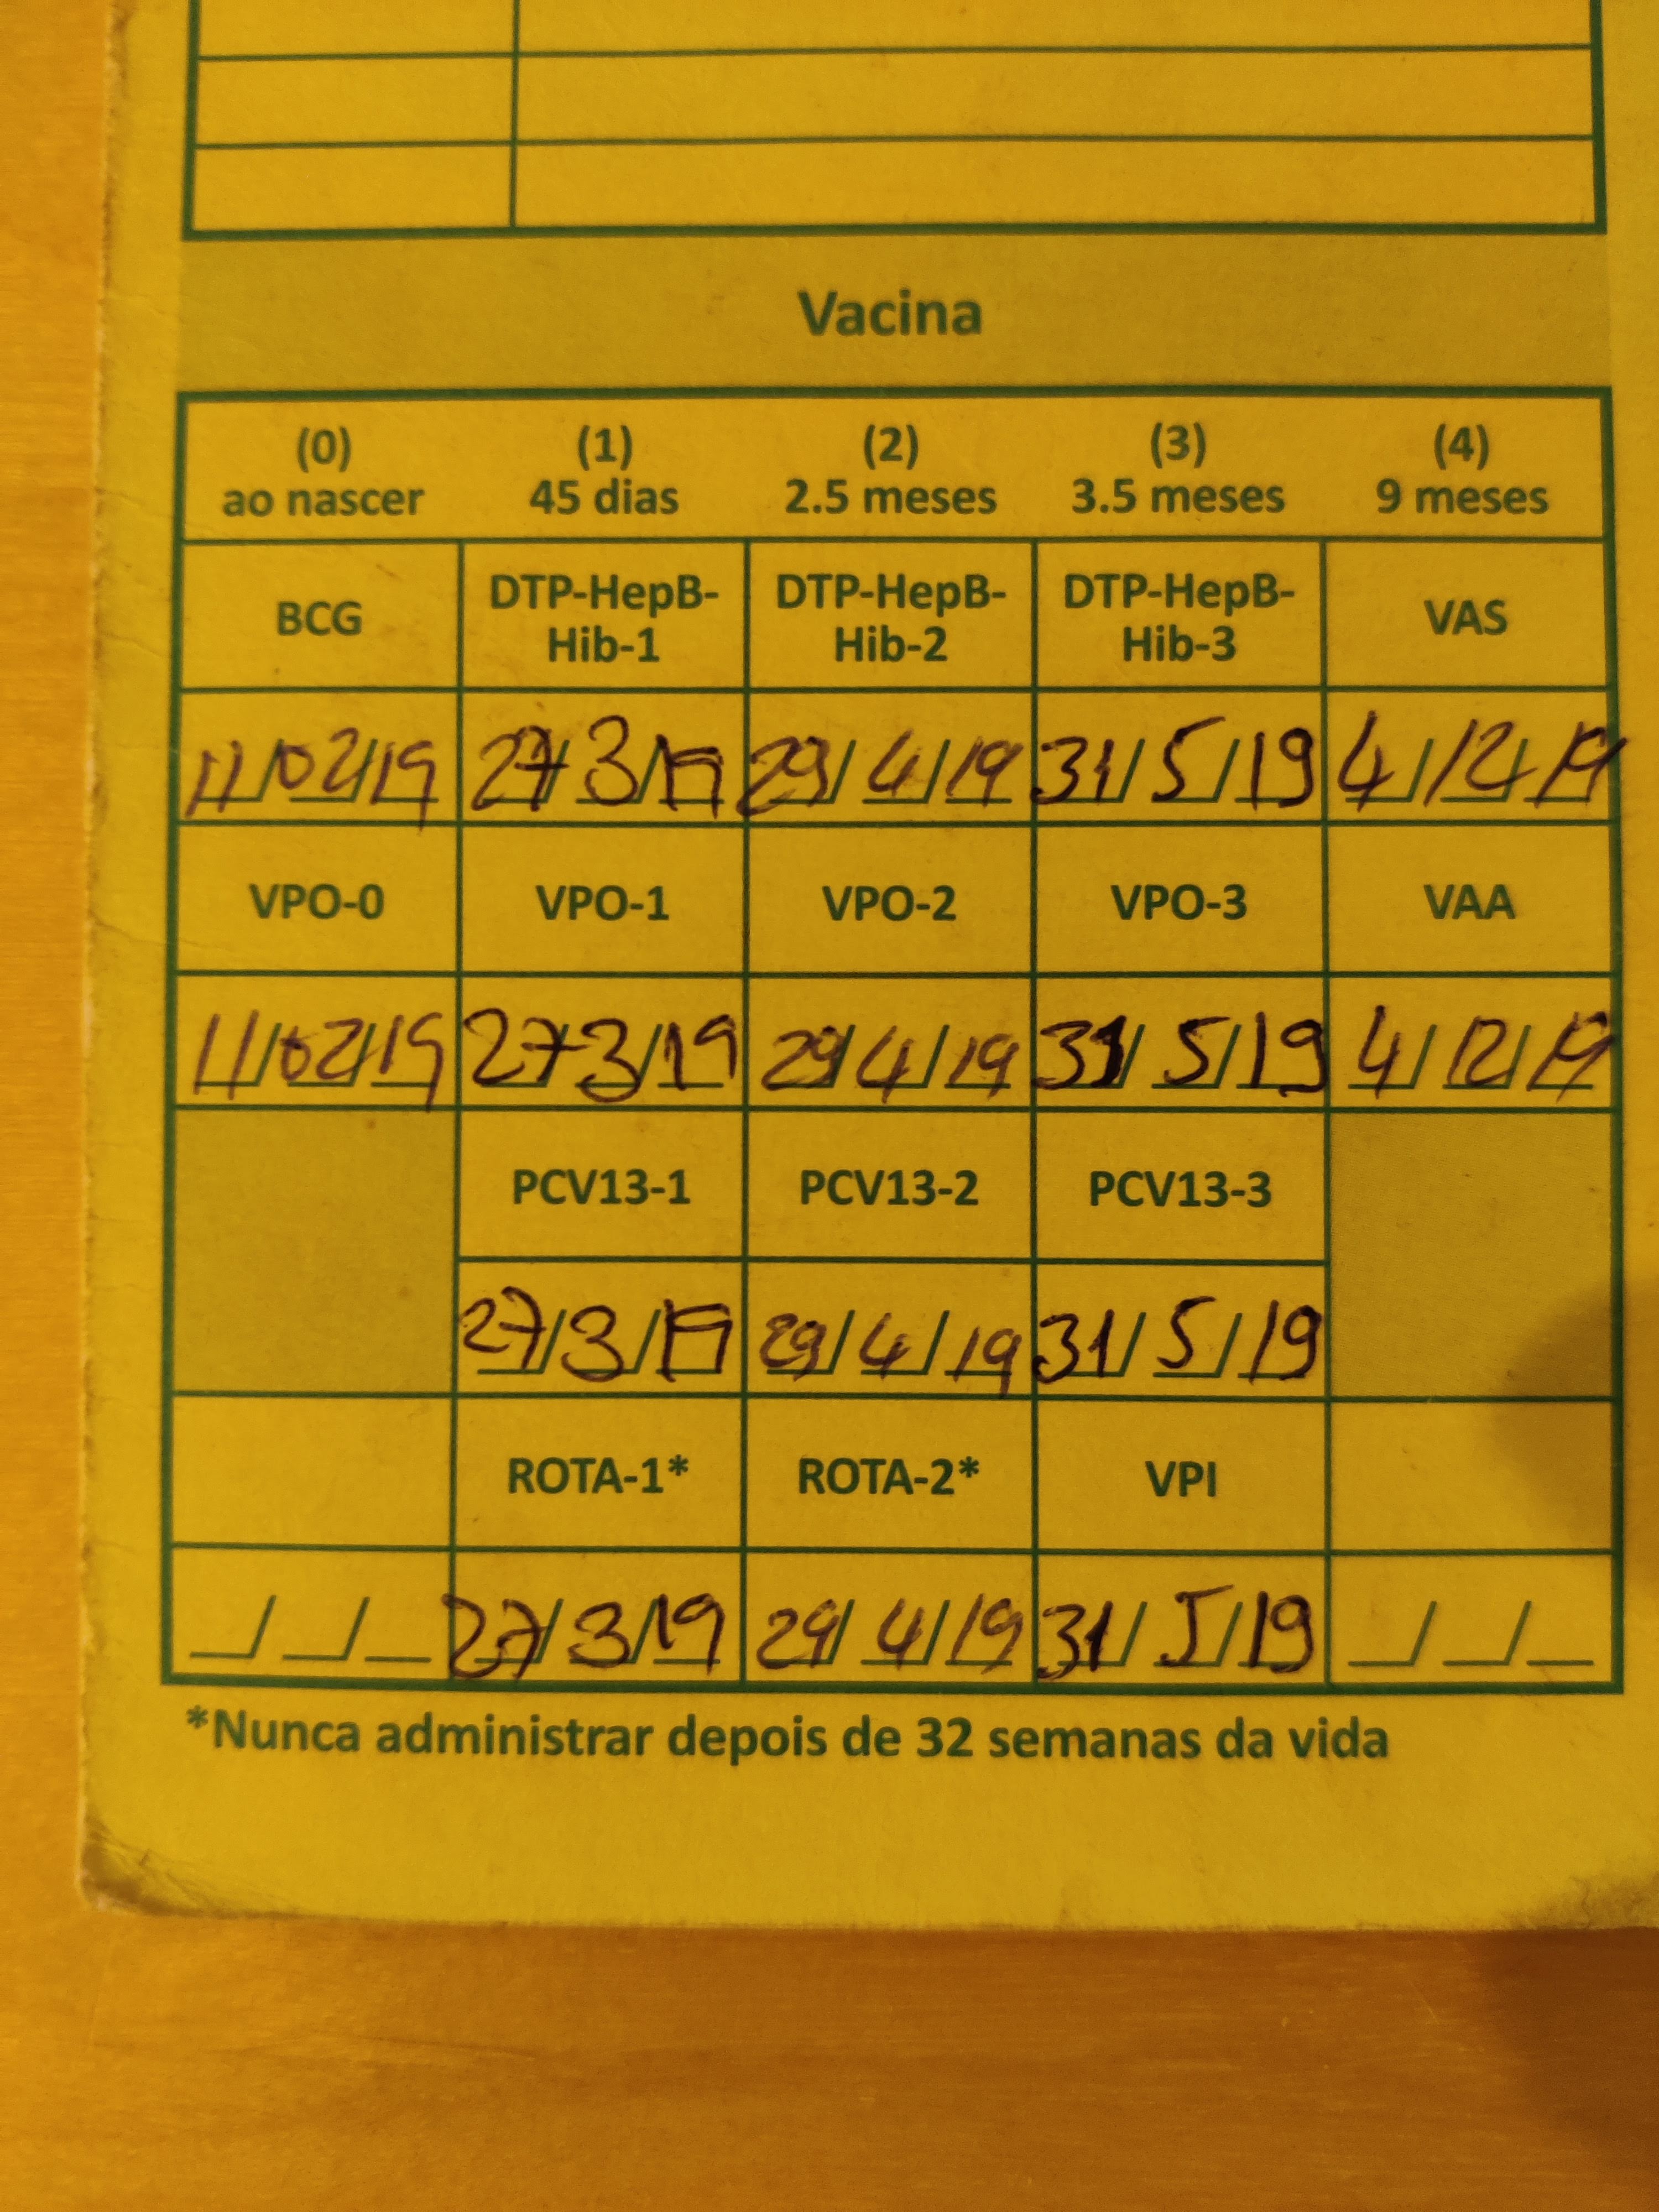 Vacina
(0) (1) (2) (3) (4)
ao nascer 45 dias 2.5 meses 3.5 meses 9 meses
BCG DTP-HepB-Hib-1 DTP-HepB-Hib-2 DTP-HepB-Hib-3 VAS
11/02/19 27/3/19 29/4/19 31/5/19 4/12/19
VPO-0 VPO-1 VPO-2 VPO-3 VAA
11/02/19 27/3/19 29/4/19 31/5/19 4/12/19
PCV13-1 PCV13-2 PCV13-3
27/3/19 29/4/19 31/5/19
ROTA-1* ROTA-2* VPI
27/3/19 29/4/19 31/5/19
*Nunca administrar depois de 32 semanas da vida